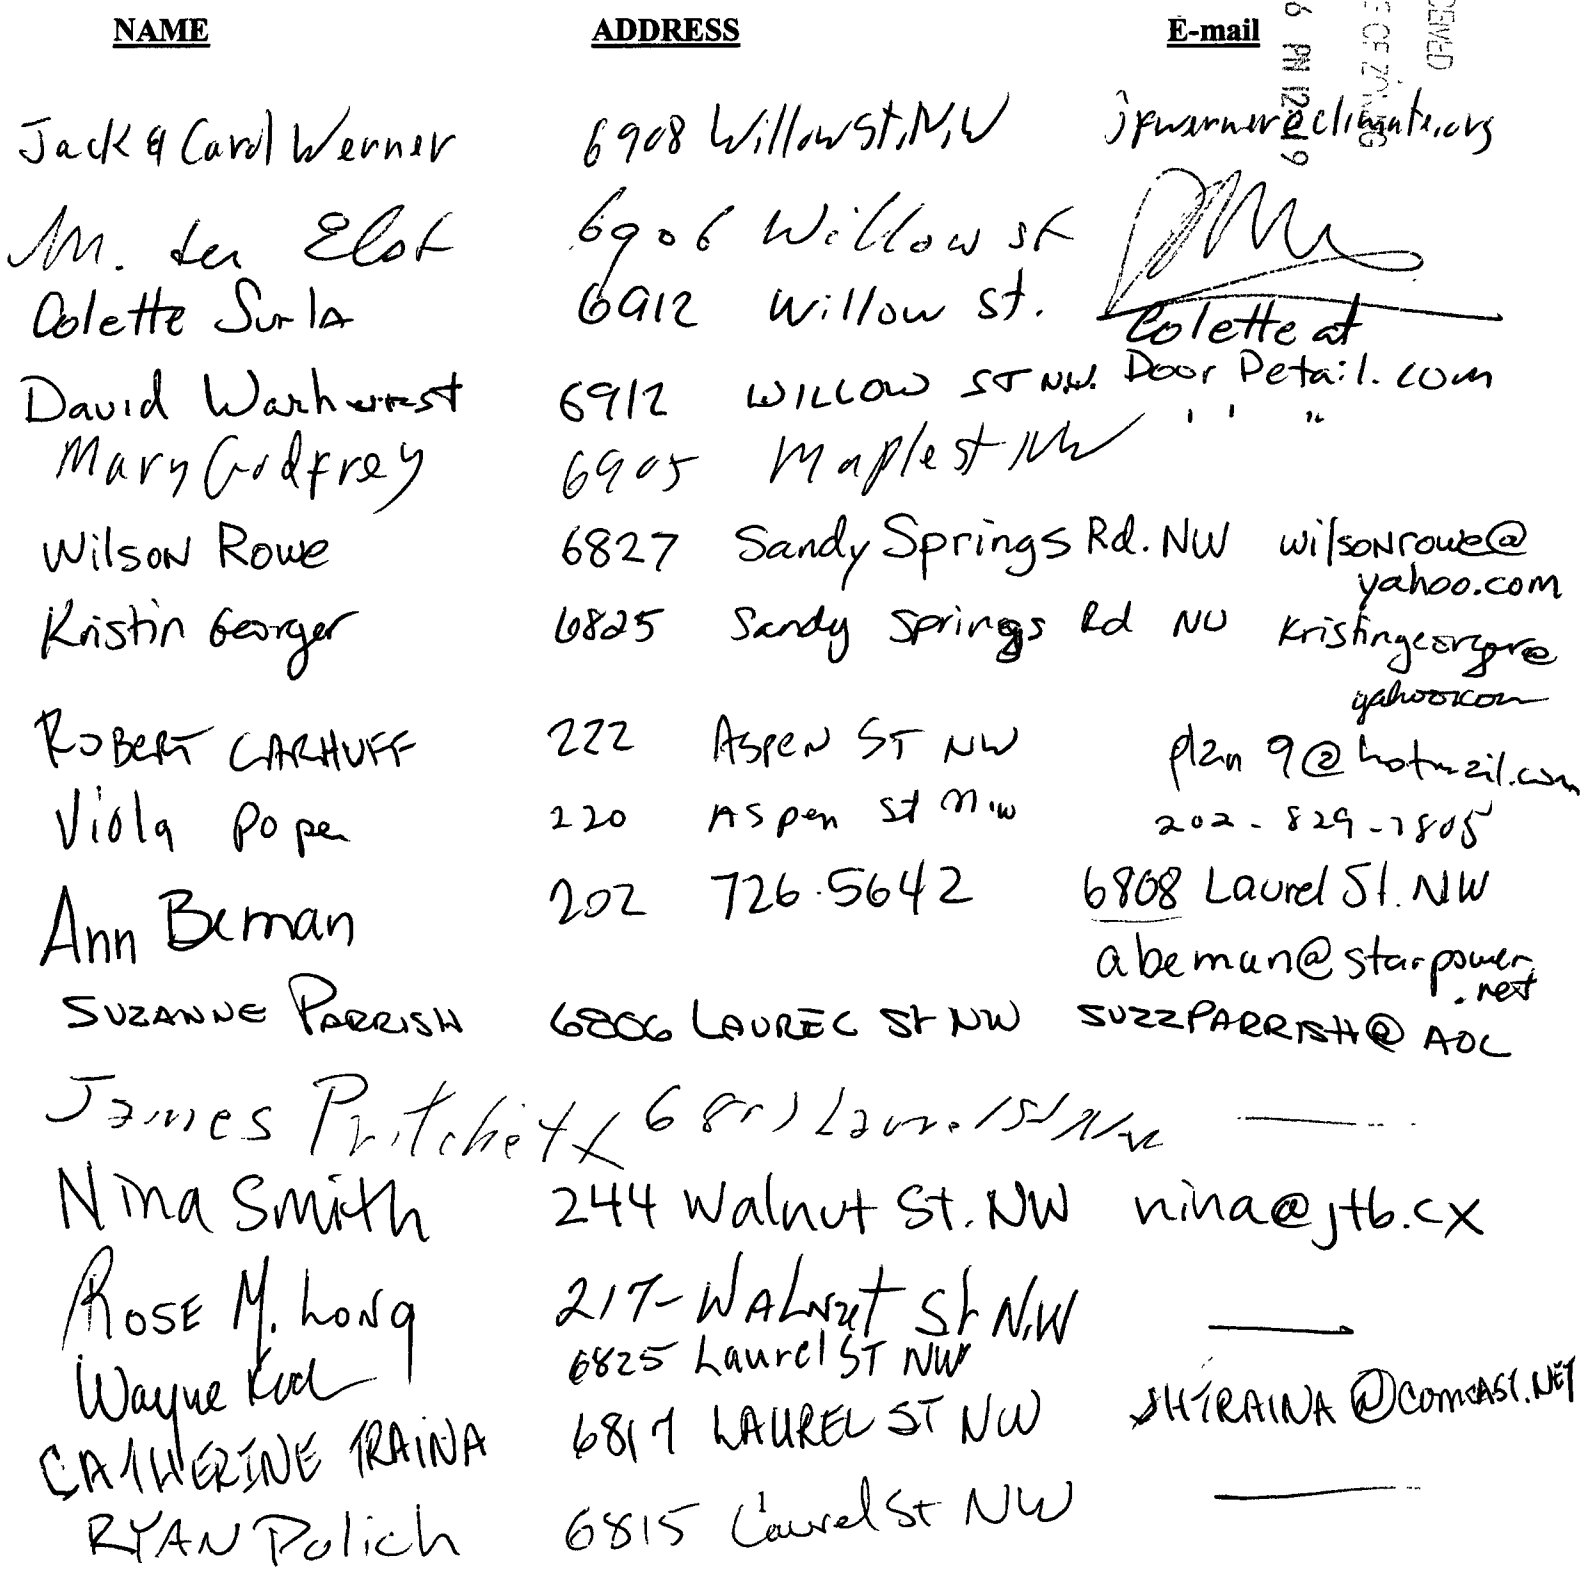 NAME ADDRESS E-mail
CEIVED
6 PM 12: 19
Jack & Carol Werner 6908 Willow St, N,W jpwerner@climate.org
M. ter Elst 6906 Willow st
Colette Surla 6912 Willow st. Colette at
David Warhurst 6912 WILLOW ST NW. Door Detail. com
Mary Godfrey 6905 Maple st NW " "
Wilson Rowe 6827 Sandy Springs Rd. NW wilsonrowe@
yahoo.com
Kristin Georger 6825 Sandy Springs Rd NW Kristingeorger@
yahoo.com
ROBERT CARHUFF 222 ASPEN ST NW plan 9@hotmail.com
Viola Pope 220 Aspen St N.W 202-829-7805
Ann Beman 202 726.5642 6808 Laurel St. NW
abeman@starpower
.net
SUZANNE PARRISH 6806 LAUREL St NW SUZZPARRISH@ AOL
James Pritchett Laurel St NW
Nina Smith 244 Walnut St. NW nina@jtb.cx
ROSE M. Long 217- WALNUT St N.W
Wayne 6825 Laurel ST NW
CATHERINE TRAINA 6817 LAUREL ST NW SHTRAINA @COMCAST.NET
RYAN Polich 6815 Laurel St NW